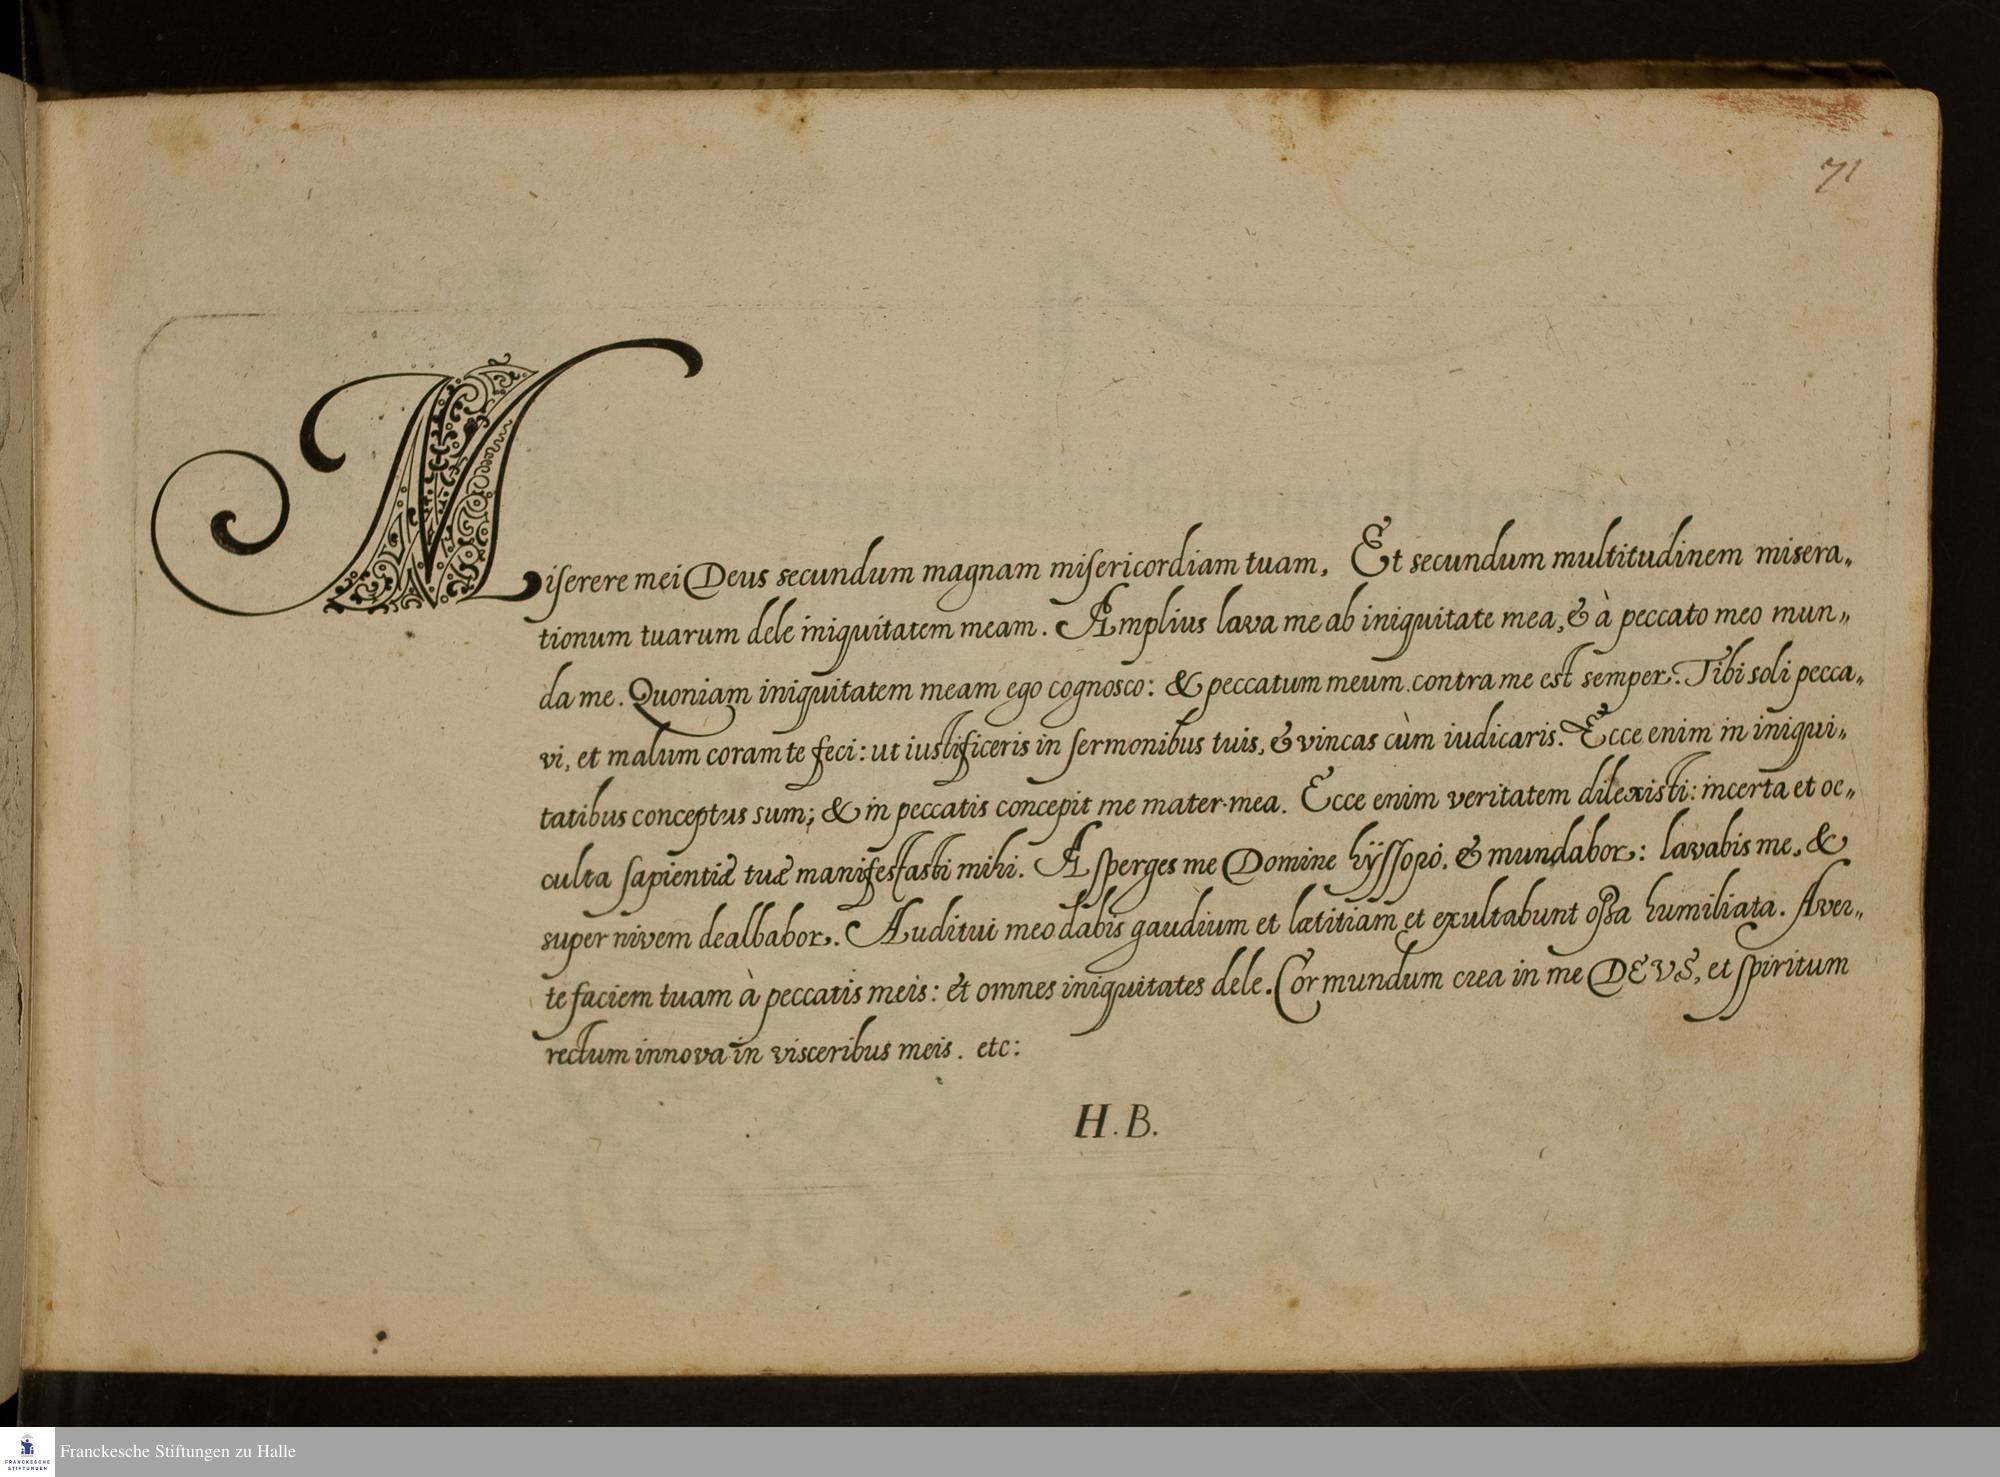 71
Miserere mei Deus secundum magnam misericordiam tuam, Et secundum multitudinem misera„
tionum tuarum dele iniquitatem meam. Amplius lava me ab iniquitate mea, & à peccato meo mun„
da me. Quoniam iniquitatem meam ego cognosco: & peccatum meum contra me est semper. Tibi soli pecca„
vi, et malum coram te feci: ut iustificeris in sermonibus tuis, & vincas cùm iudicaris. Ecce enim in iniqui„
tatibus conceptus sum; & in peccatis concepit me mater mea. Ecce enim veritatem dilexisti: incerta et oc„
culta sapientiæ tuæ manifestasti mihi. Asperges me Domine hÿssopó, & mundabor: lavabis me, &
super nivem dealbabor. Auditui meo dabis gaudium et lætitiam et exultabunt ossa humiliata. Aver„
te faciem tuam à peccatis meis: et omnes iniquitates dele. Cor mundum crea in me DEVS, et spiritum
rectum innova in visceribus meis. etc:
H. B.
Franckesche Stiftungen zu Halle
FRANCKESCHE
STIFTUNGEN